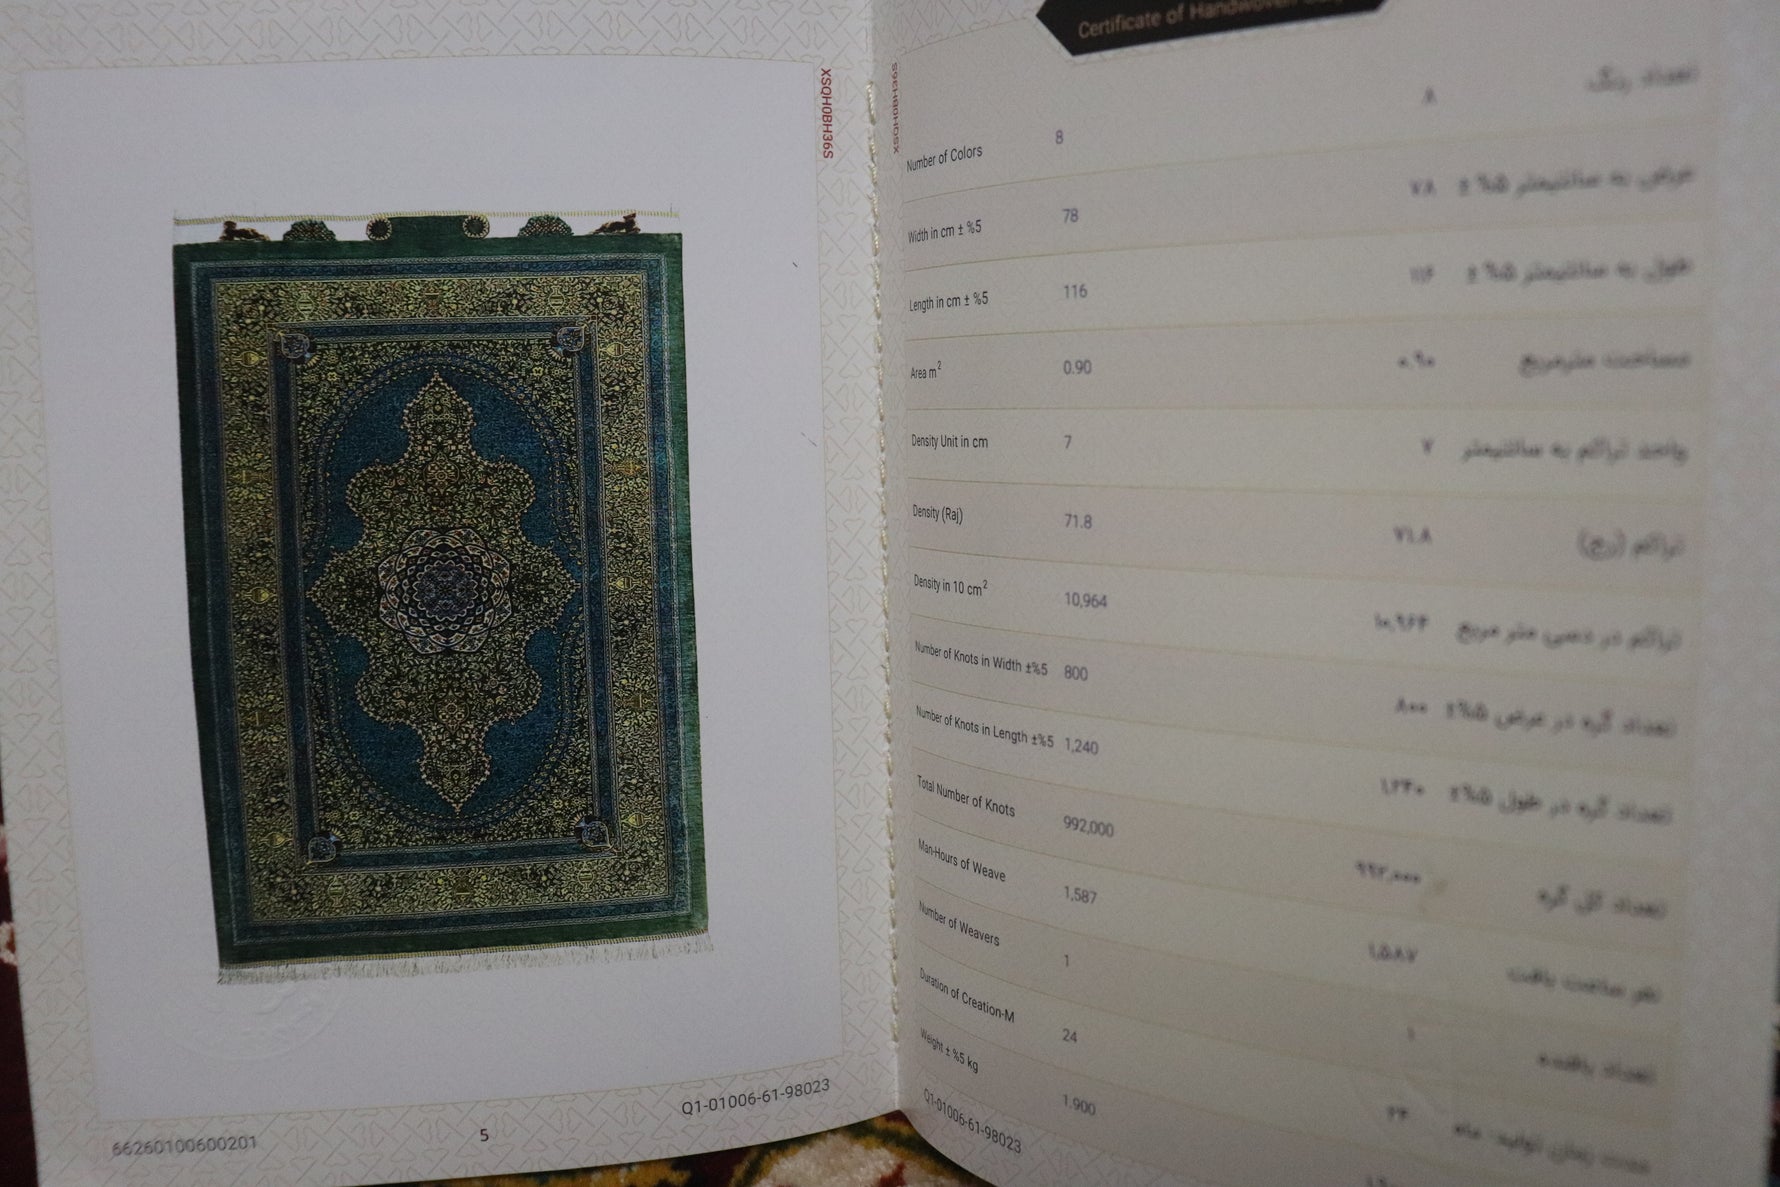 XSQH0BH36S
66260100600201
5
Q1-01006-61-98023
Certificate of Handwoven
Number of Colors 8 ۸ تعداد رنگ
Width in cm ± %5 78 ۷۸ عرض به سانتیمتر ۵%±
Length in cm ± %5 116 ۱۱۶ طول به سانتیمتر ۵%±
Area m² 0.90 ۰.۹۰ مساحت مترمربع
Density Unit in cm 7 ۷ واحد تراکم به سانتیمتر
Density (Raj) 71.8 ۷۱.۸ تراکم (رج)
Density in 10 cm² 10,964 ۱۰,۹۶۴ تراکم در دسی متر مربع
Number of Knots in Width ±%5 800 ۸۰۰ تعداد گره در عرض ۵%±
Number of Knots in Length ±%5 1,240 ۱,۲۴۰ تعداد گره در طول ۵%±
Total Number of Knots 992,000 ۹۹۲,۰۰۰ تعداد کل گره
Man-Hours of Weave 1,587 ۱,۵۸۷ نفر ساعت بافت
Number of Weavers 1 ۱ تعداد بافنده
Duration of Creation-M 24 ۲۴ مدت زمان تولید- ماه
Weight ± %5 kg 1.900
Q1-01006-61-98023